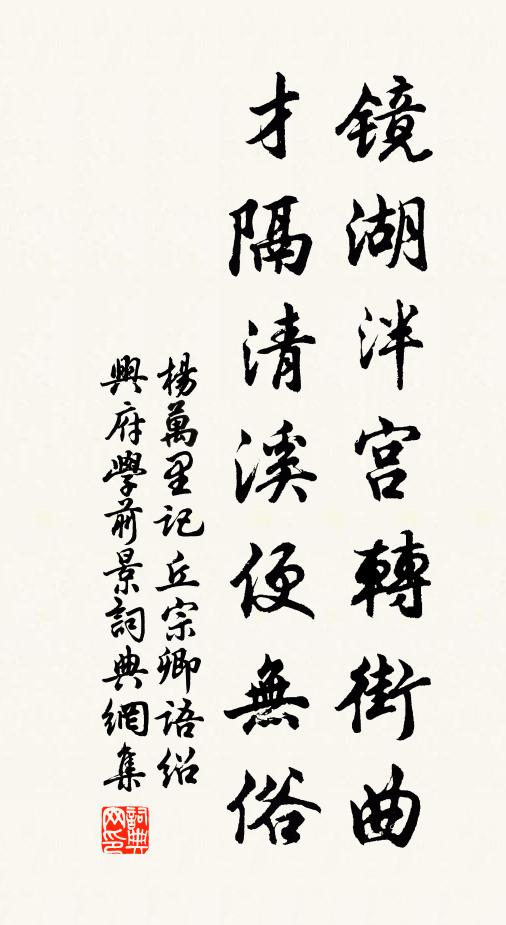 镜湖泮宫轉街曲
才隔清溪便無俗
楊萬里记丘宗卿语绍
興府學前景詞典網集
詞典网印